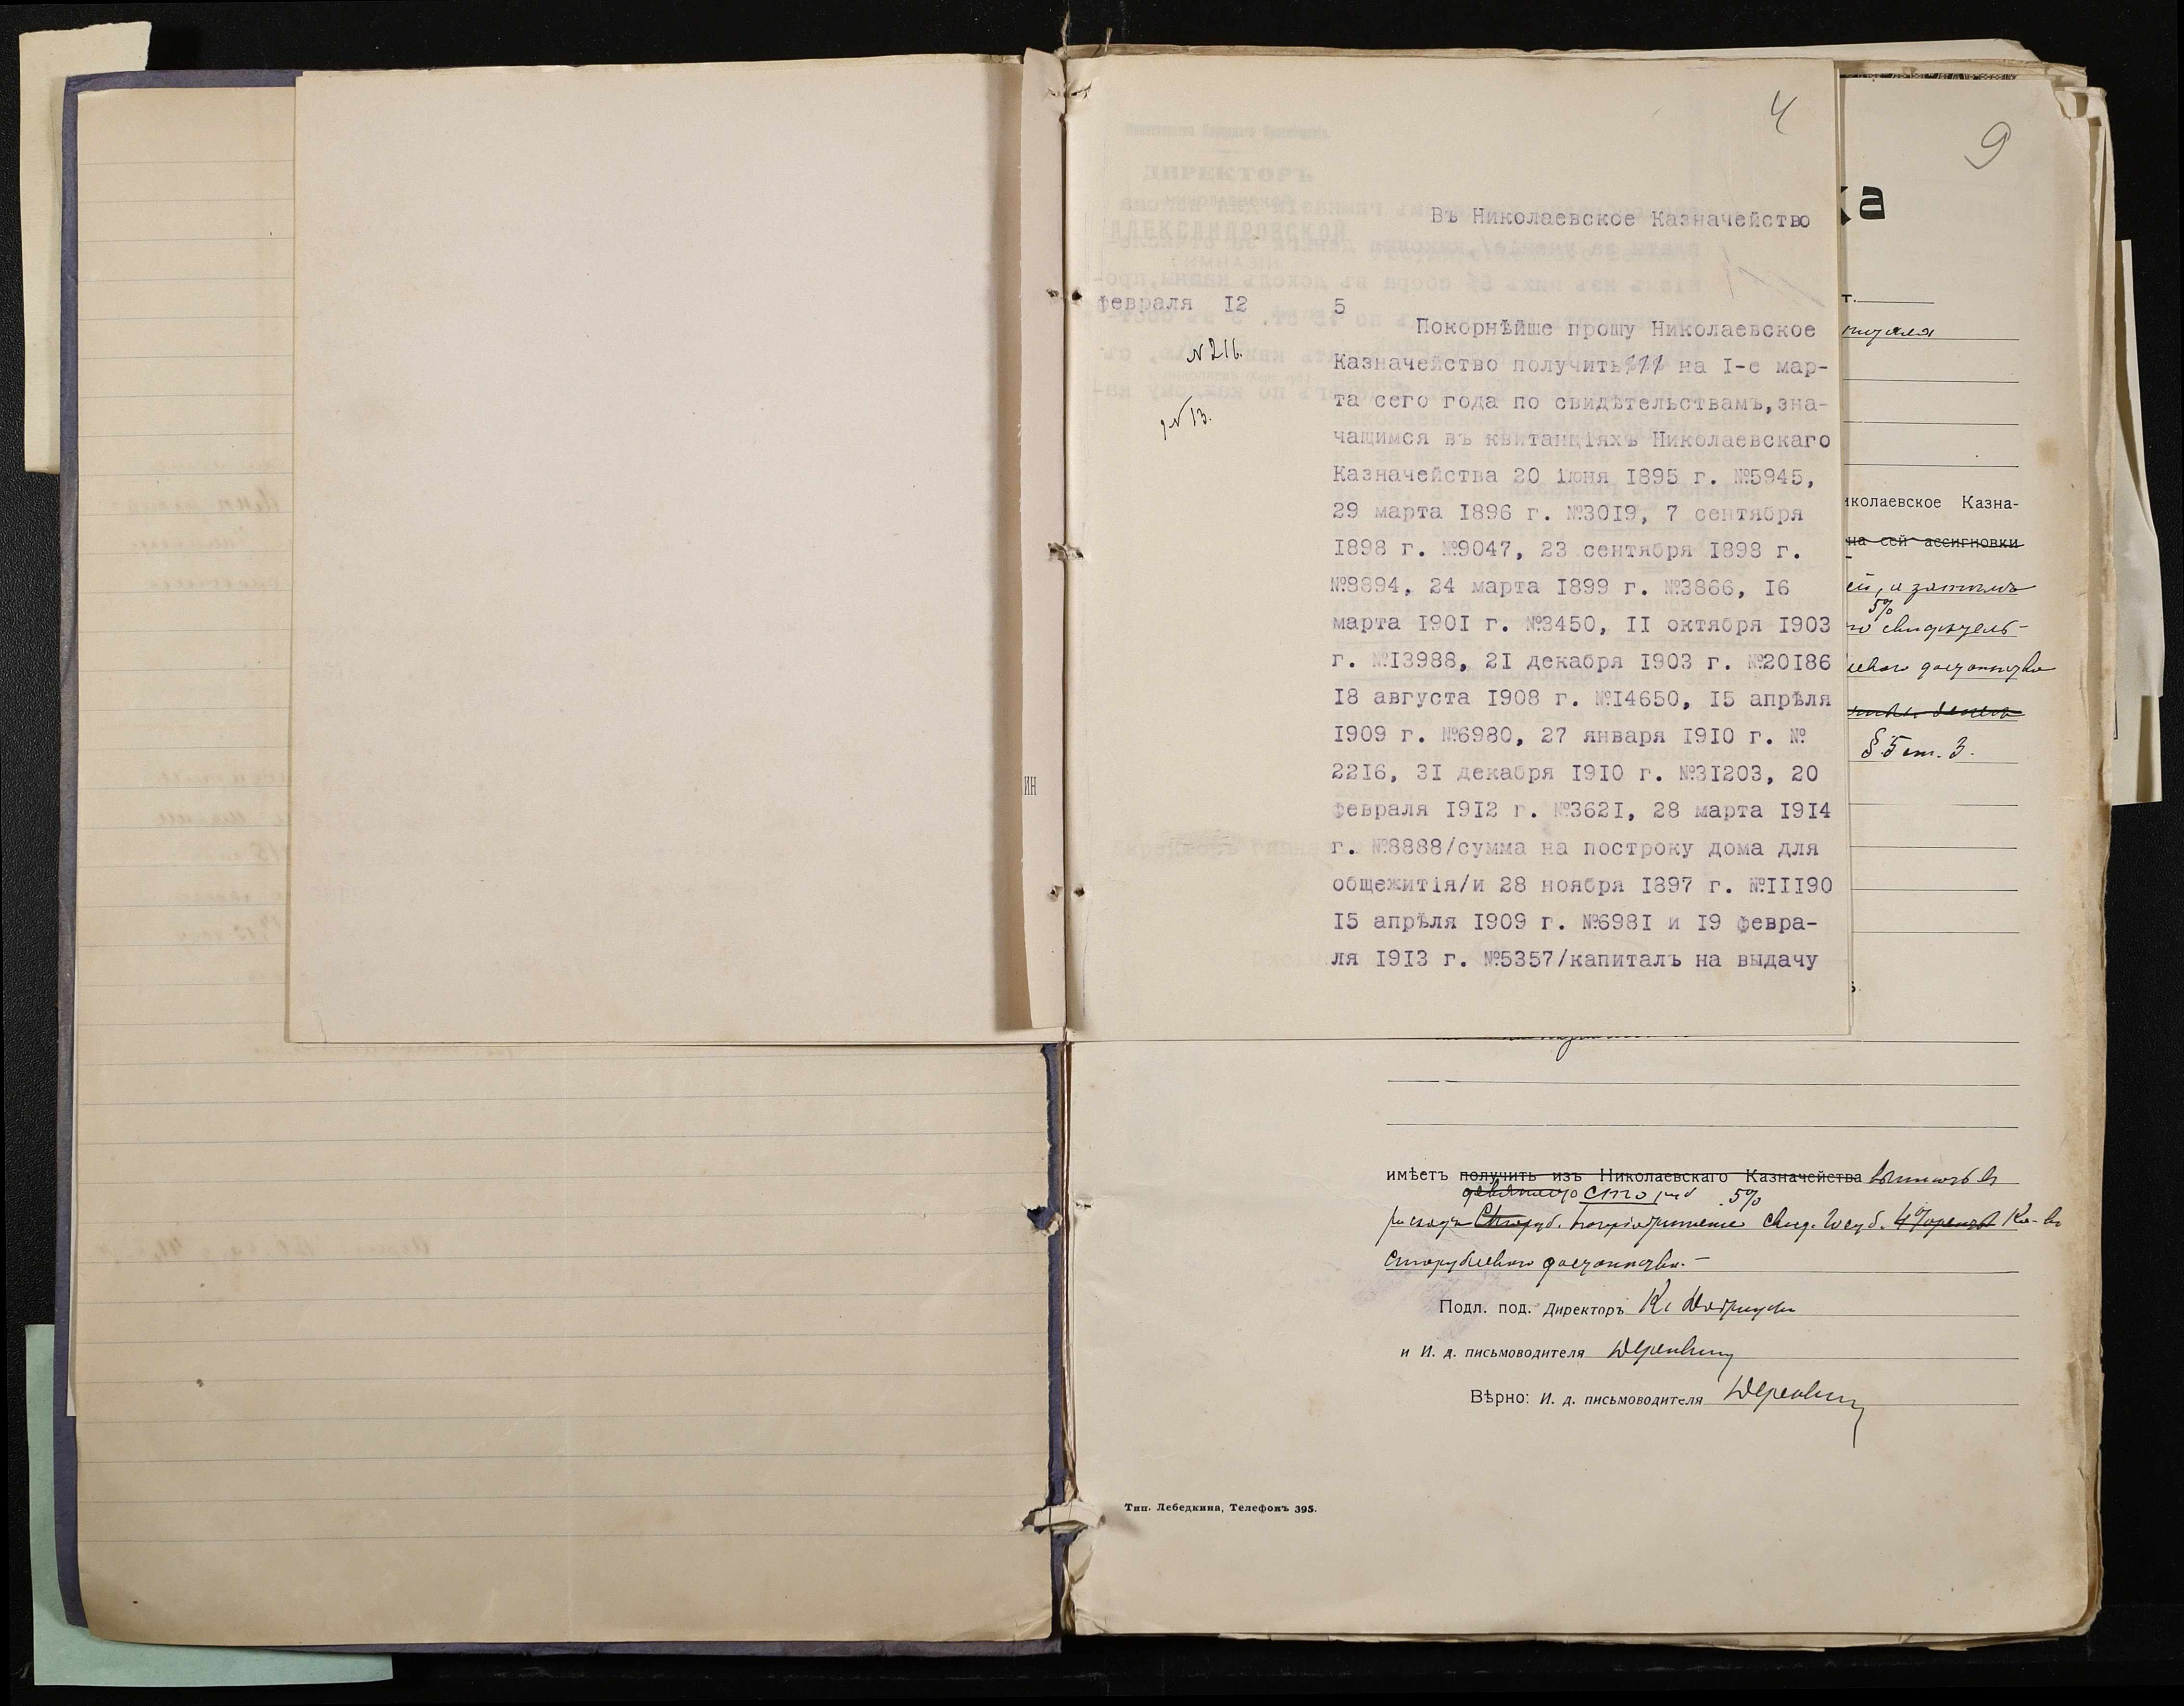 4
Въ Николаевское Казначейство
февраля 12 5
№ 216.
№ 13.
Покорнѣйше прошу Николаевское
Казначейство получить на I-е мар-
та сего года по свидѣтельствамъ,зна-
чащимся въ квитанціяхъ Николаевскаго
Казначейства 20 іюня I895 г. №5945,
29 марта I896 г. №30I9, 7 сентября
I898 г. №9047, 23 сентября I898 г.
№8894, 24 марта I899 г. №3866, I6
марта I90I г. №3450, II октября I903
г. №I3988, 2I декабря I903 г. №20I86
I8 августа I908 г. №I4650, I5 апрѣля
I909 г. №6980, 27 января I9I0 г. №
22I6, 3I декабря I9I0 г. №3I203, 20
февраля I9I2 г. №362I, 28 марта I9I4
г. №8888/сумма на построку дома для
общежитія/и 28 ноября I897 г. №III90
I5 апрѣля I909 г. №698I и I9 февра-
ля I9I3 г. №5357/капиталъ на выдачу
ин
9
ка
т.
иколаевское Казна-
на сей ассигновки
ей, а затѣмъ
5%
го свидѣтель-
левого достоинства
§ 5 ст. 3.
имѣетъ получить изъ Николаевскаго Казначейства
сто 5%
сторублеваго достоинства.
Подл. под. Директоръ
и И. д. письмоводителя
Вѣрно: И. д. письмоводителя
Тип. Лебедкина, Телефонъ 395.